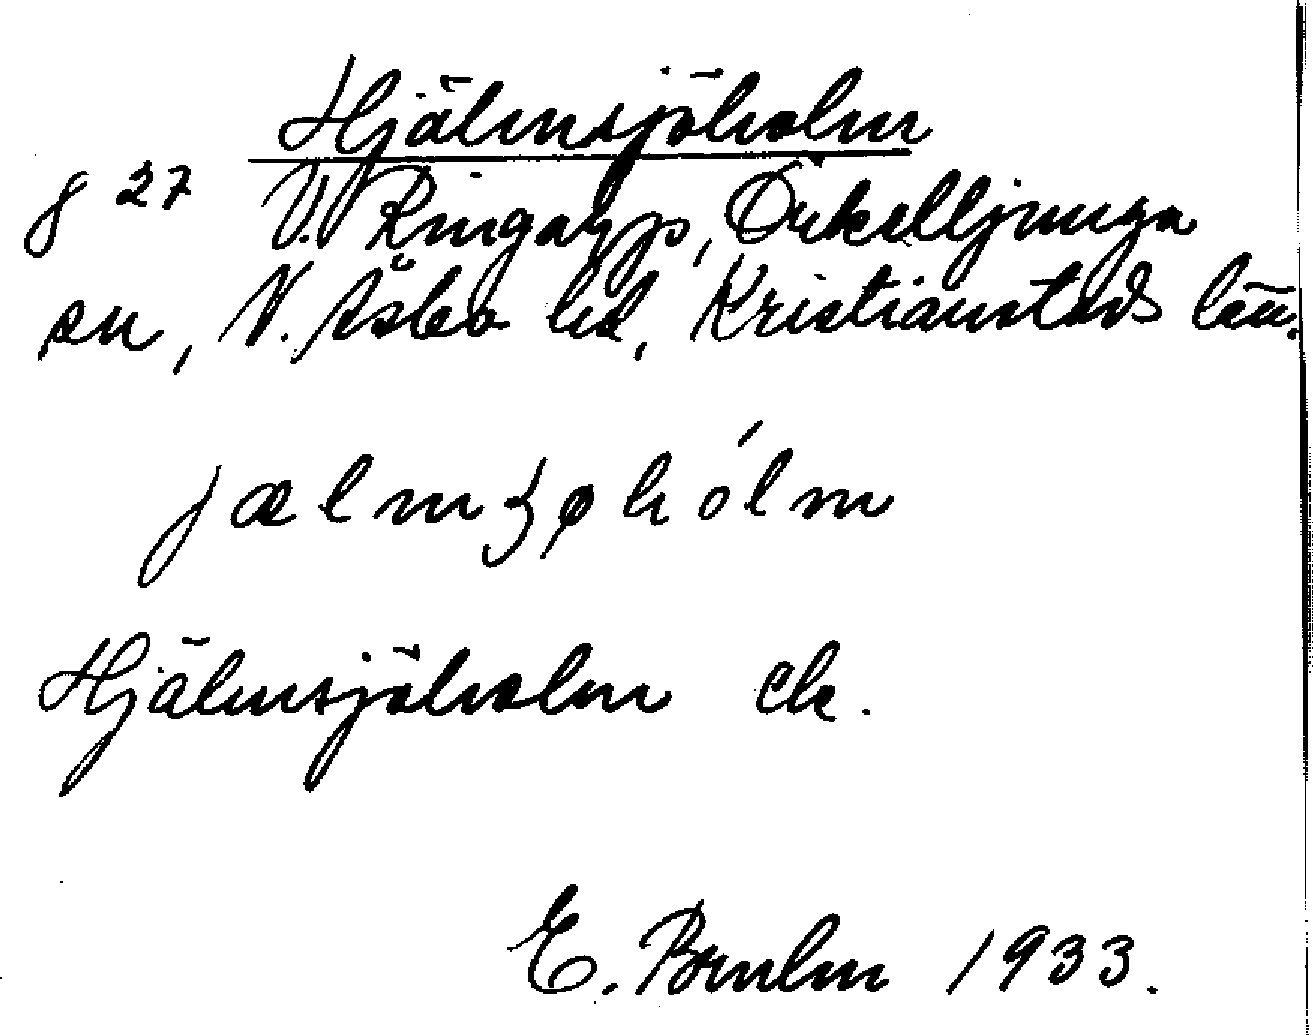 Hjälmsjöholm
g 27 V. Ringarp, Örkelljunga
sn, N. Åsbo hd, Kristianstads län.
jælmʒøhólm
Hjälmsjöholm ek.
E. Bruhn 1933.